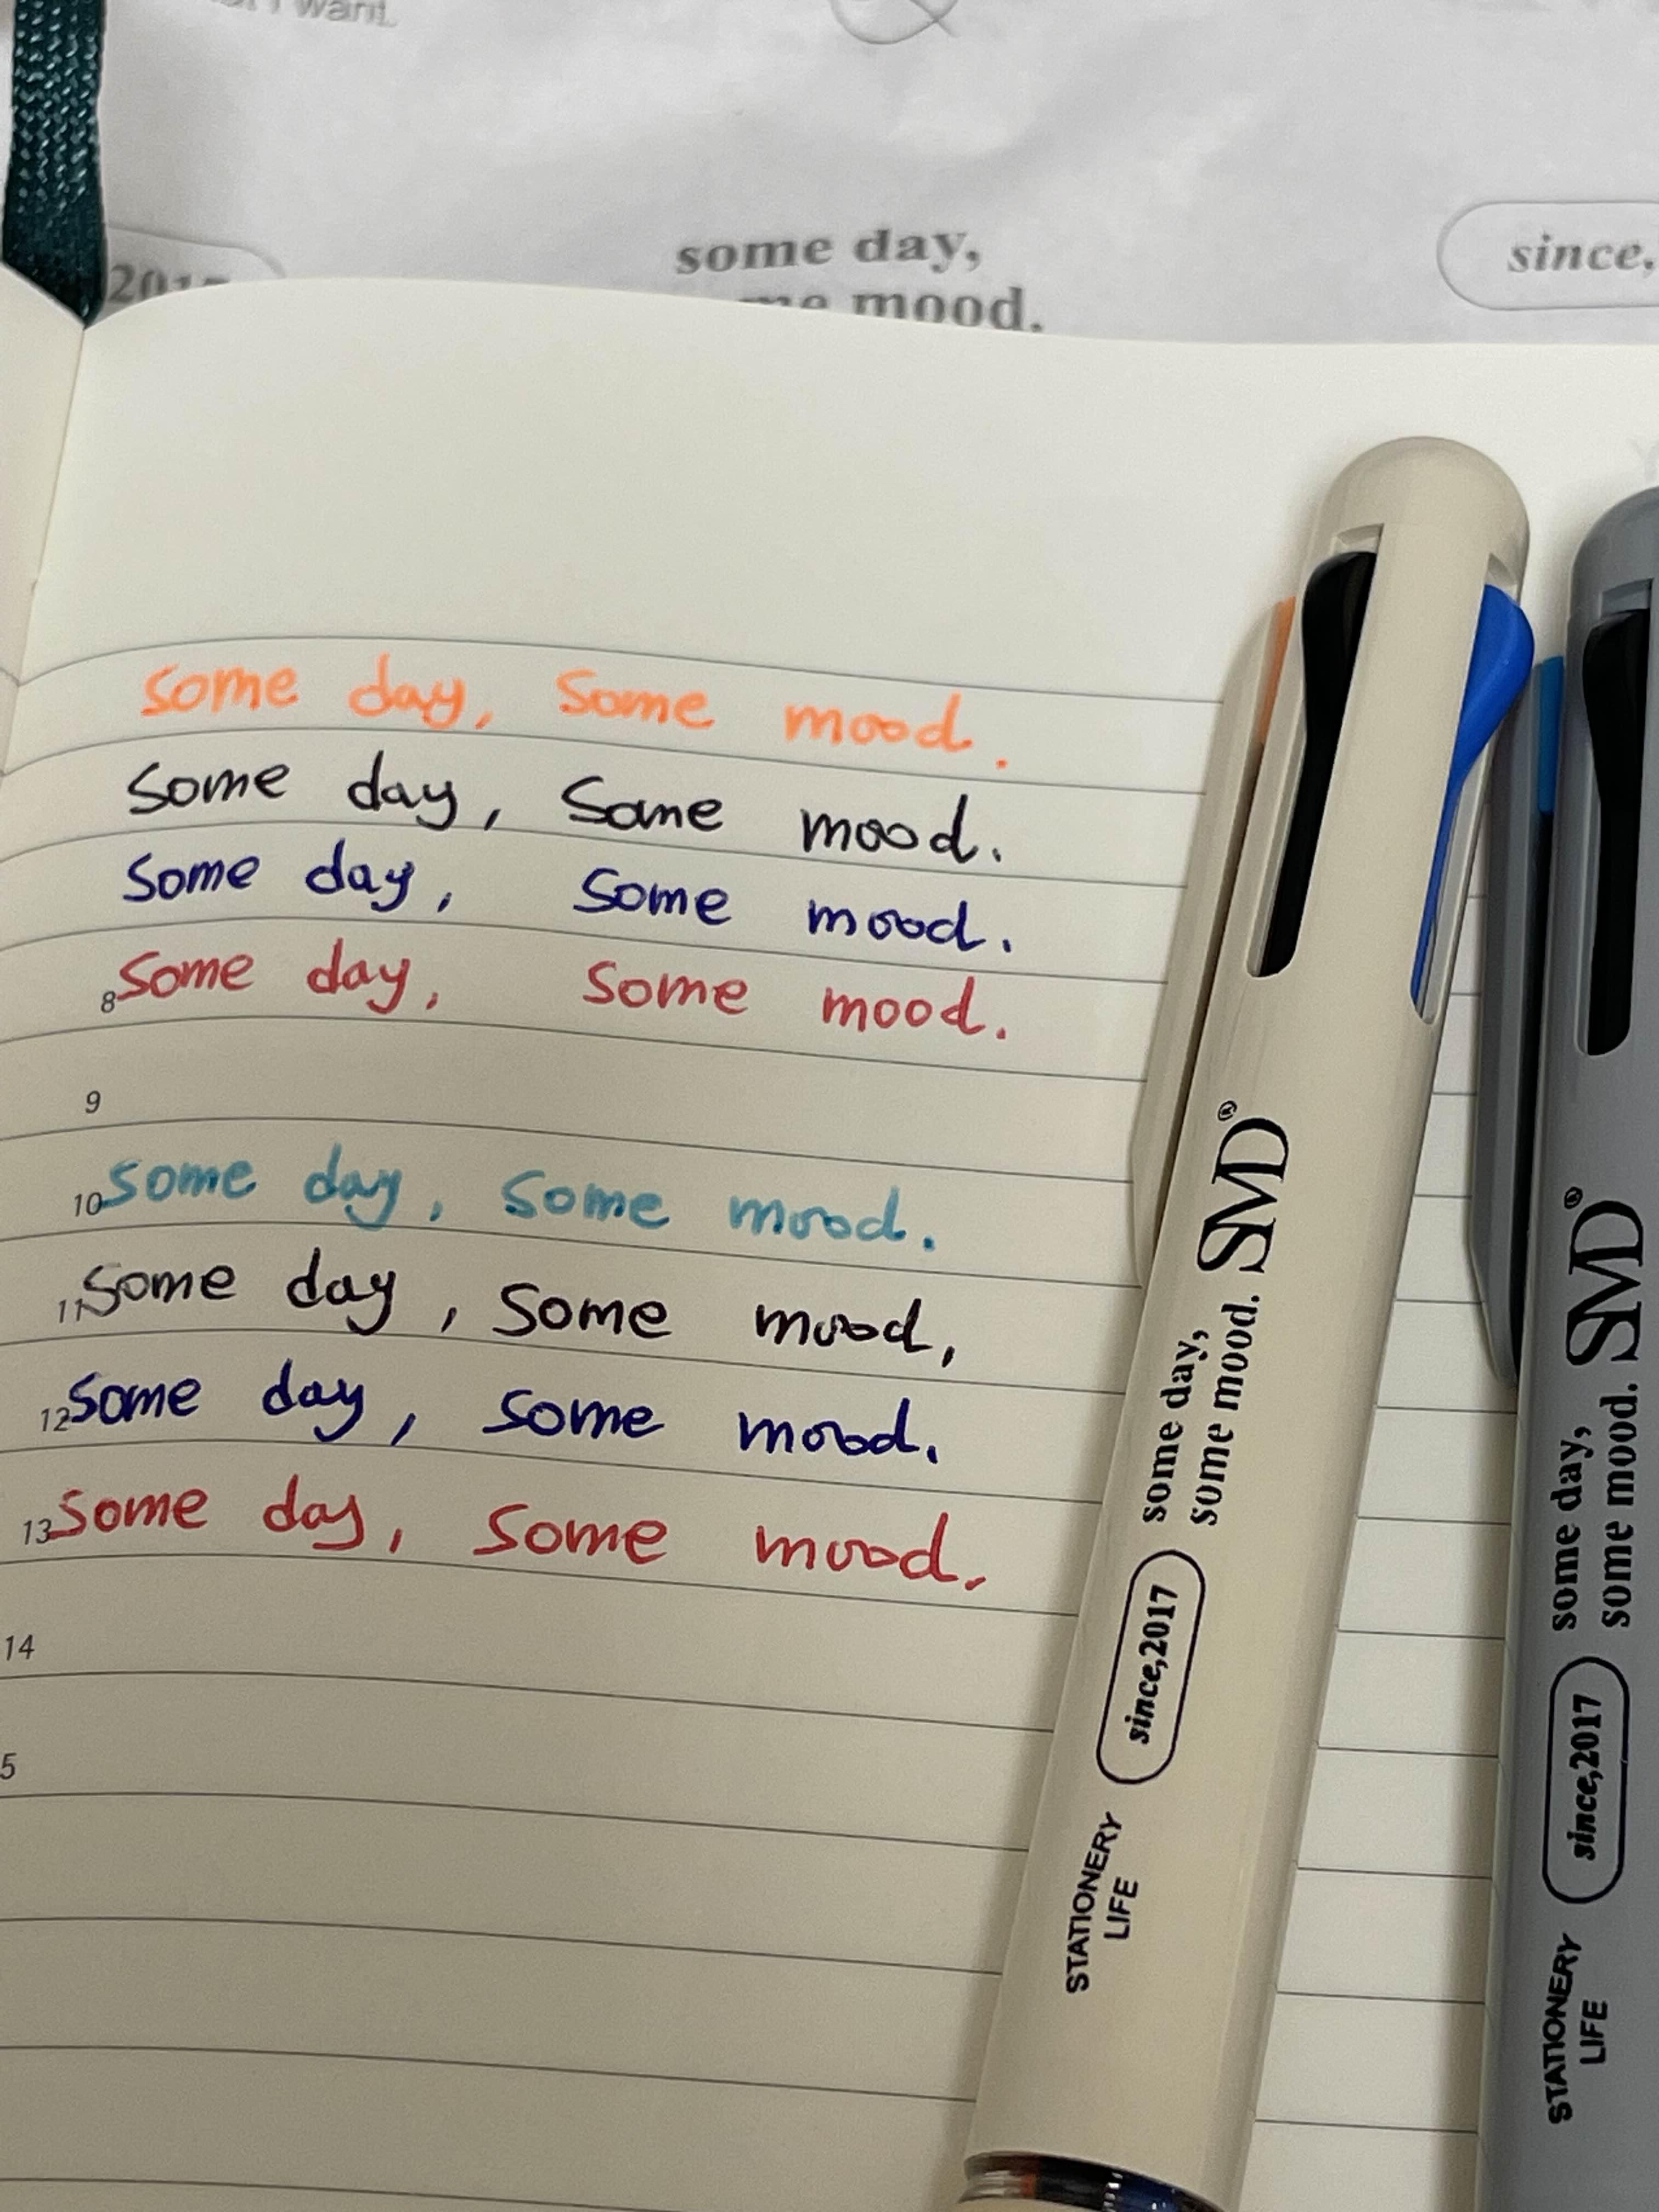 I want.
some day,
mood.
since,
some day, some mood.
some day, some mood.
some day, some mood.
8 some day, some mood.
9
10 some day, some mood.
11 some day, some mood,
12 some day, some mood.
13 some day, some mood.
14
5
SMD®
some day,
some mood.
since,2017
STATIONERY
LIFE
SMD®
some day,
some mood.
since,2017
STATIONERY
LIFE